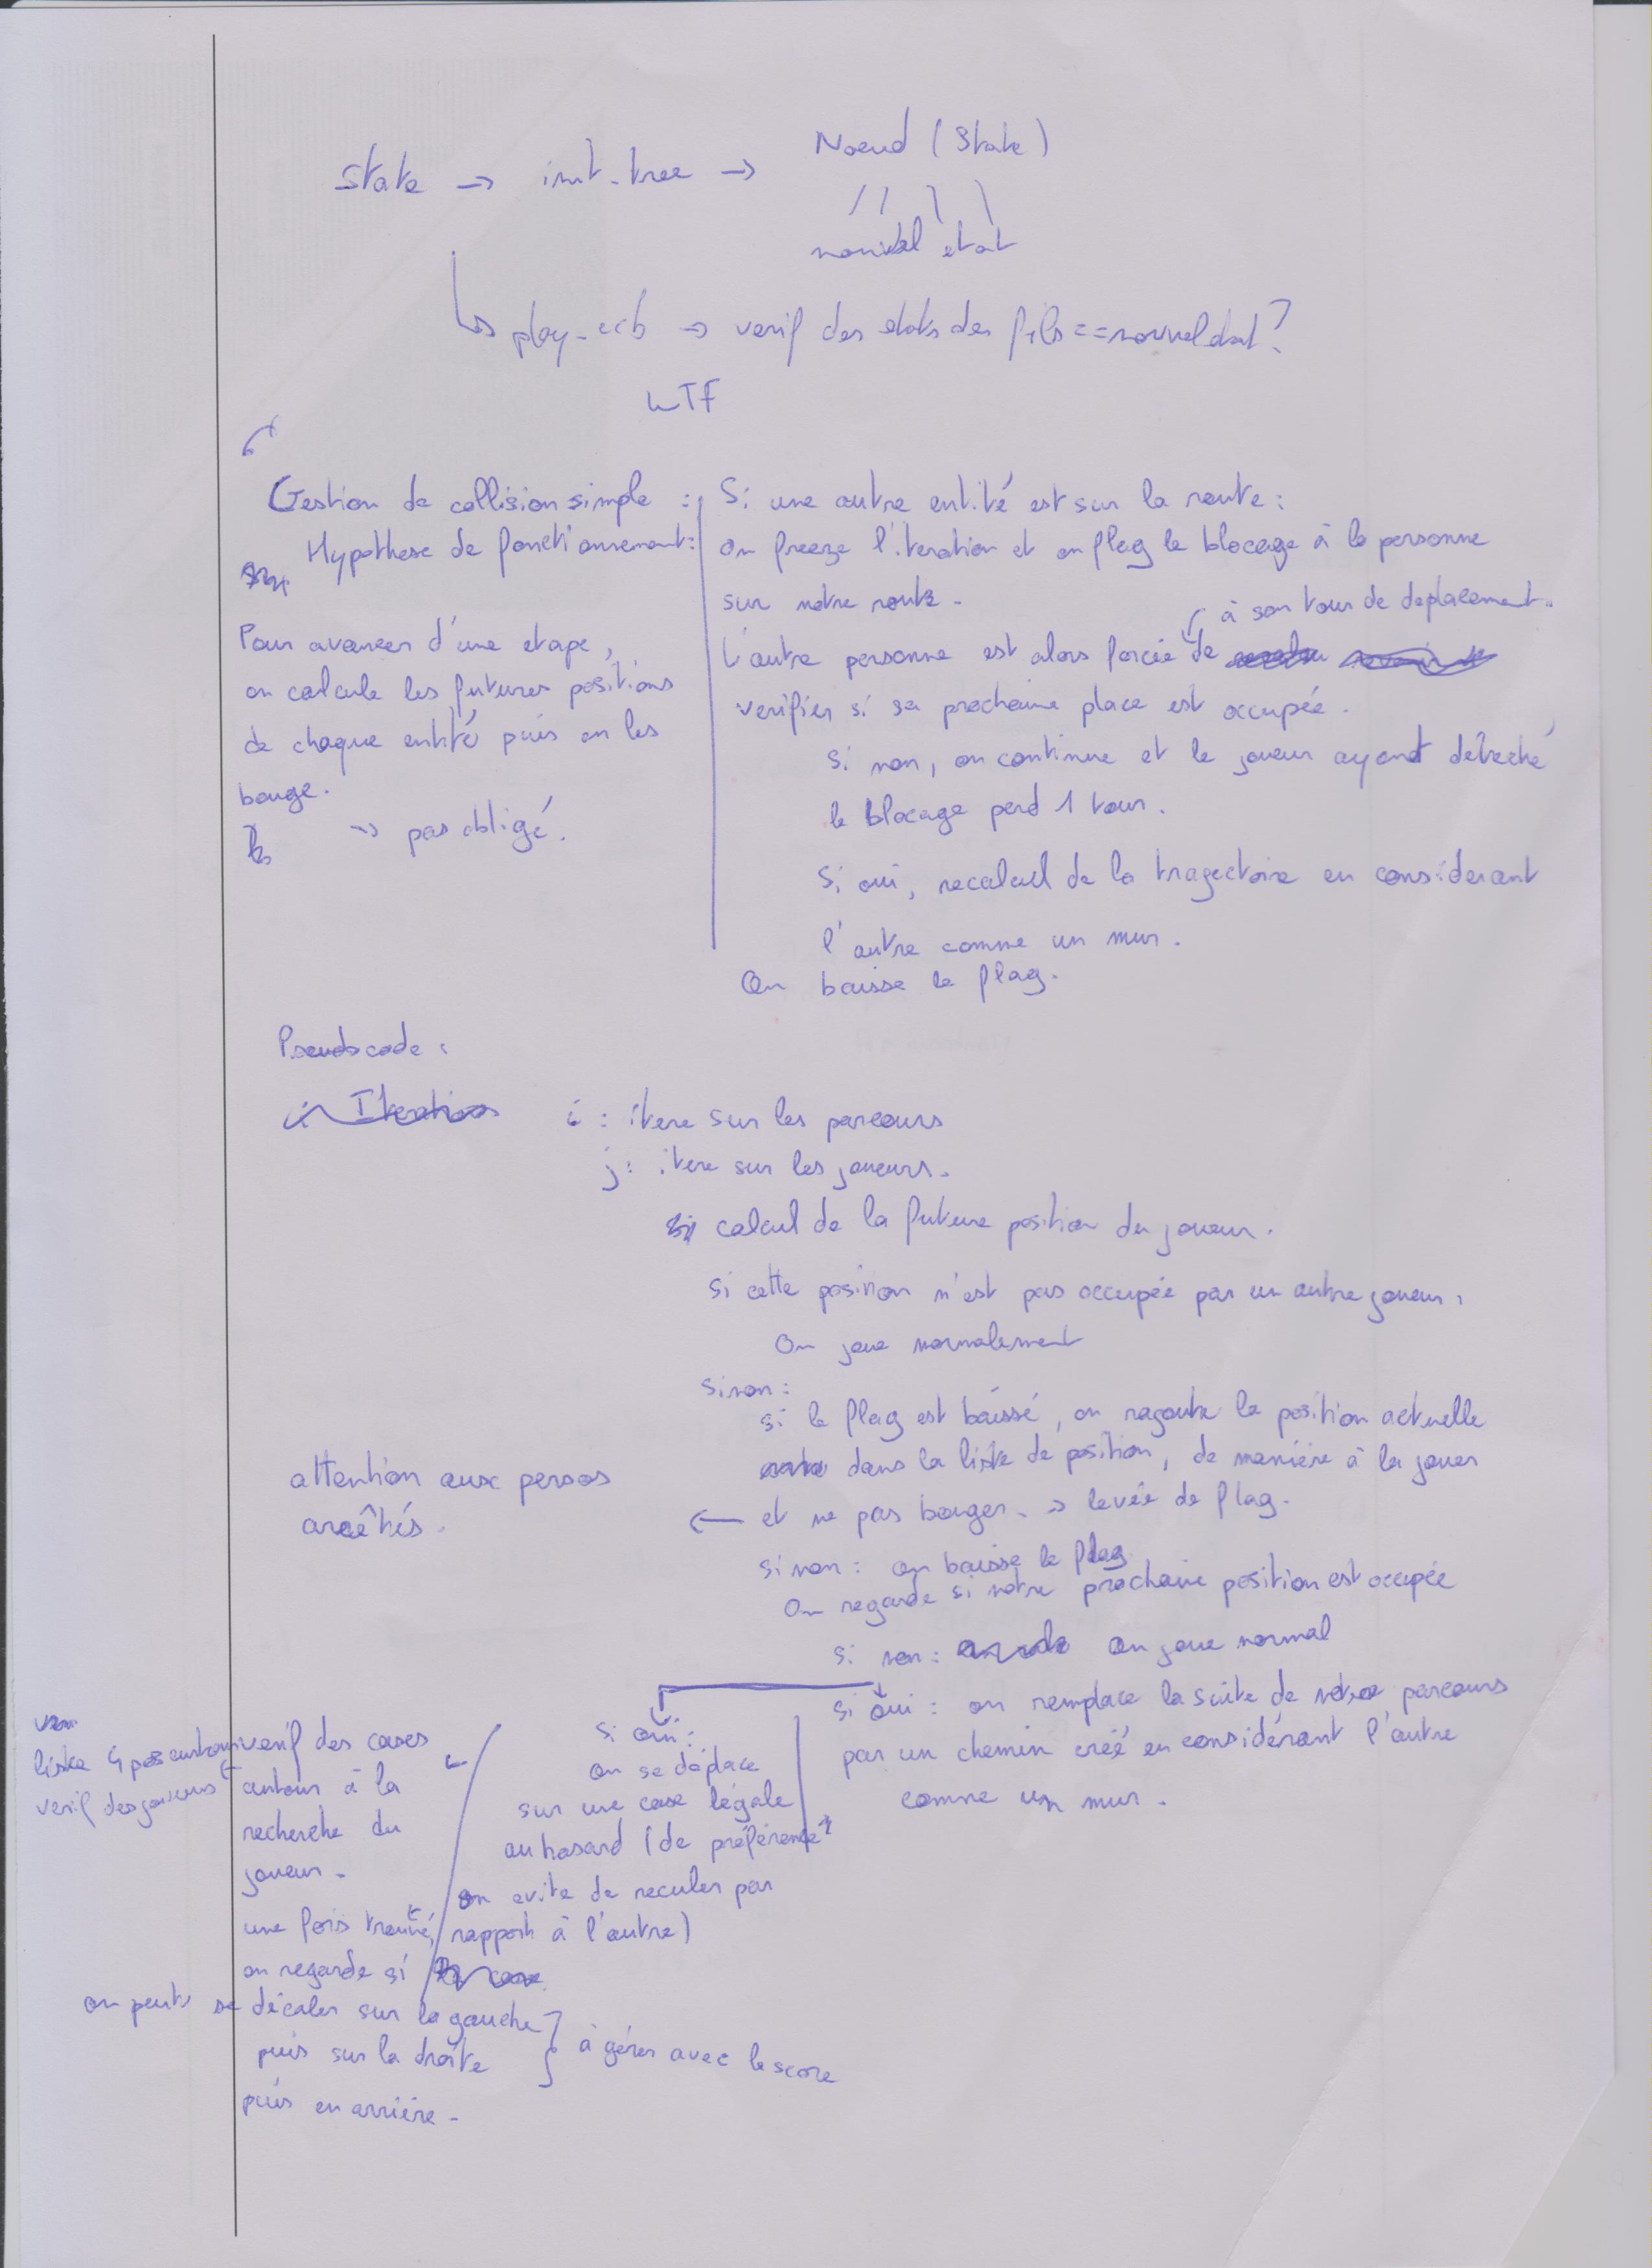 State → init_tree → Noeud (State)
nouvel etat
↳ play_ucb → verif des etats des fils == nouvel etat ?
WTF
Gestion de collision simple :
Hypothese de fonctionnement :
Pour avancer d'une etape,
on calcule les futures positions
de chaque entité puis on les
bouge.
→ pas obligé.
Si une autre entité est sur la route :
on freeze l'iteration et on flag le blocage à la personne
sur notre route.
à son tour de deplacement.
L'autre personne est alors forcée de
verifier si sa prochaine place est occupée.
Si non, on continue et le joueur ayant detecté
le blocage perd 1 tour.
Si oui, recalcul de la trajectoire en considerant
l'autre comme un mur.
On baisse le flag.
Pseudocode :
i : itere sur les parcours
j : itere sur les joueurs.
calcul de la future position du joueur.
Si cette position n'est pas occupée par un autre joueur,
On joue normalement
sinon :
si le flag est baissé, on rajoute la position actuelle
dans la liste de position, de manière à la jouer
← et ne pas bouger. → levée de flag.
attention aux persos
arrêtés.
sinon : on baisse le flag
On regarde si notre prochaine position est occupée
si non : on joue normal
si oui : on remplace la suite de notre parcours
par un chemin créé en considérant l'autre
comme un mur.
Si oui :
on se déplace
sur une case légale
au hasard (de préférence
on evite de reculer par
rapport à l'autre)
verif des cases
autour à la
recherche du
joueur.
une fois trouvé,
on regarde si
on peut se décaler sur la gauche
puis sur la droite
puis en arrière.
à gérer avec le score
liste 4 pos autour
verif des joueurs